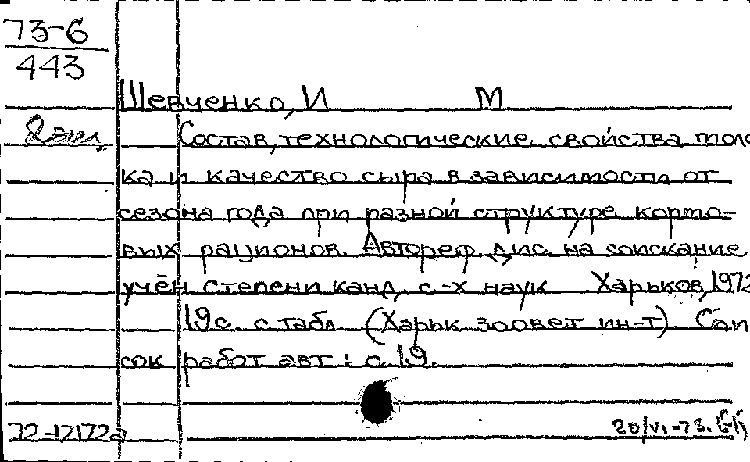 73-6
443
Шевченко, И М
2 экз.
Состав, технологические свойства моло
ка и качество сыра в зависимости от
сезона года при разной структуре кормо-
вых рационов. Автореф. дис. на соискание
учён степени канд. с-х наук Харьков, 1972
19с. с табл (Харьк зоовет ин-т) Спи
сок работ авт: с. 19.
72-12172а
20/VI-73.